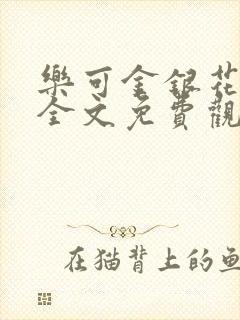 樂可金銀花
全文免費觀
在猫背上的鱼